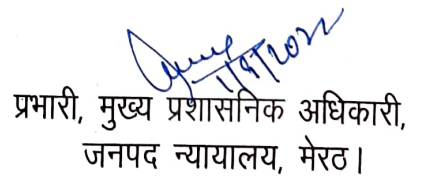 1/9/2022
प्रभारी, मुख्य प्रशासनिक अधिकारी,
जनपद न्यायालय, मेरठ।